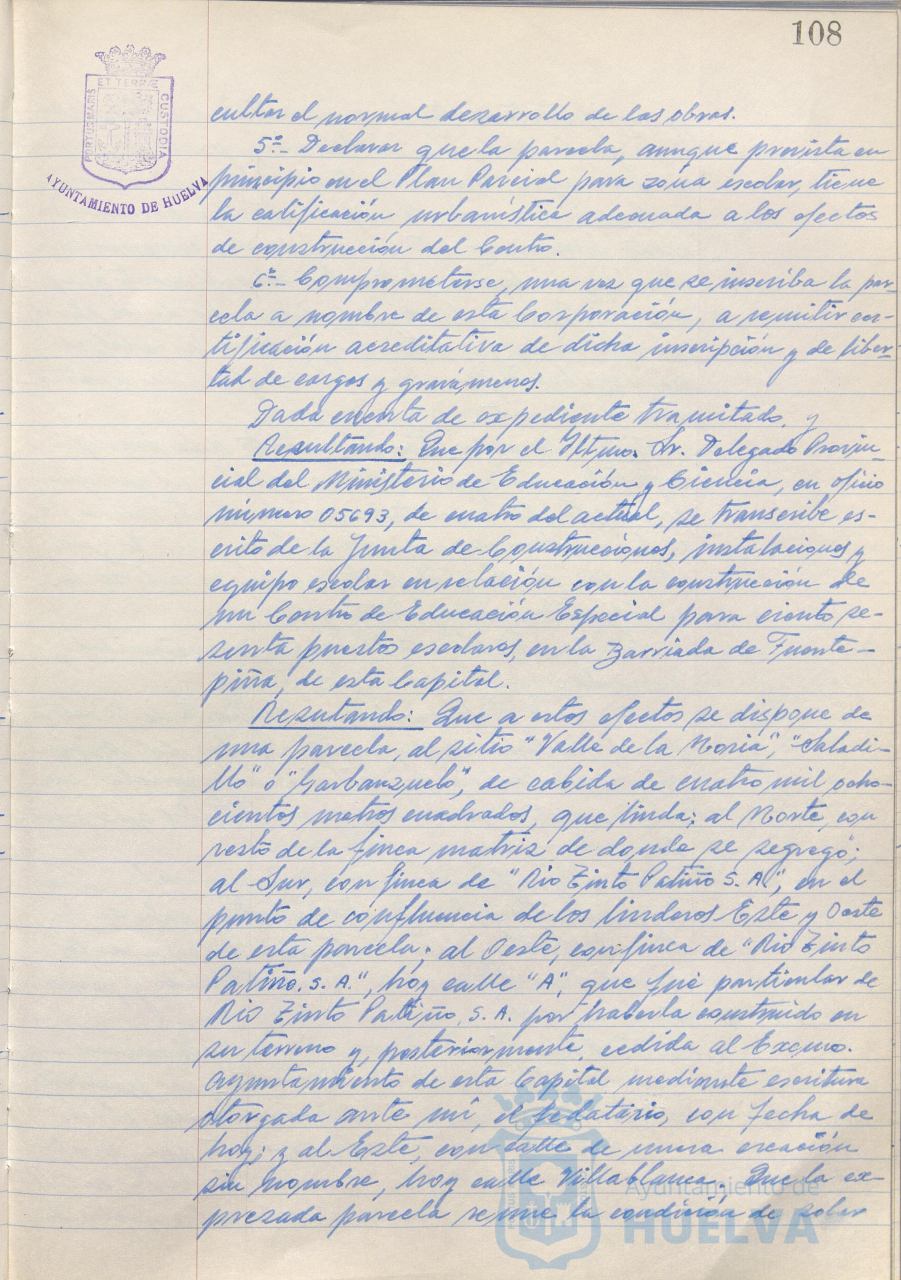 108
PORTUS MARIS ET TERRAE CUSTODIA
AYUNTAMIENTO DE HUELVA
cultar el normal desarrollo de las obras.
5º.- Declarar que la parcela, aunque prevista en
principio en el Plan Parcial para zona escolar, tiene
la calificación urbanística adecuada a los efectos
de construcción del Centro.
6º.- Comprometerse, una vez que se inscriba la par-
cela a nombre de esta Corporación, a remitir cer-
tificación acreditativa de dicha inscripción y de liber-
tad de cargas y gravámenes.
Dada cuenta de expediente tramitado, y
Resultando: Que por el Iltmo. Sr. Delegado Provin-
cial del Ministerio de Educación y Ciencia, en oficio
número 05693, de cuatro del actual, se transcribe es-
crito de la Junta de Construcciones, instalaciones y
equipo escolar en relación con la construcción de
un Centro de Educación Especial para ciento se-
senta puestos escolares, en la Barriada de Fuente-
piña, de esta Capital.
Resutando: Que a estos efectos se dispone de
una parcela, al sitio "Valle de la Noria", "Saladi-
llo" o "Garbanzuelo", de cabida de cuatro mil ocho-
cientos metros cuadrados, que linda; al Norte, con
resto de la finca matriz de donde se segregó;
al Sur, con finca de "Rio Tinto Patiño S.A.", en el
punto de confluencia de los linderos Este y Oeste
de esta parcela; al Oeste, con finca de "Rio Tinto
Patiño. S.A.", hoy calle "A", que fué particular de
Rio Tinto Patiño, S.A. por haberla construido en
su terreno y, posteriormente, cedida al Excmo.
Ayuntamiento de esta Capital mediante escritura
otorgada ante mí, el fedatario, con fecha de
hoy; y al Este, con calle de nueva creación
sin nombre, hoy calle Villablanca. Que la ex-
presada parcela reune la condición de solar
Ayuntamiento de
HUELVA